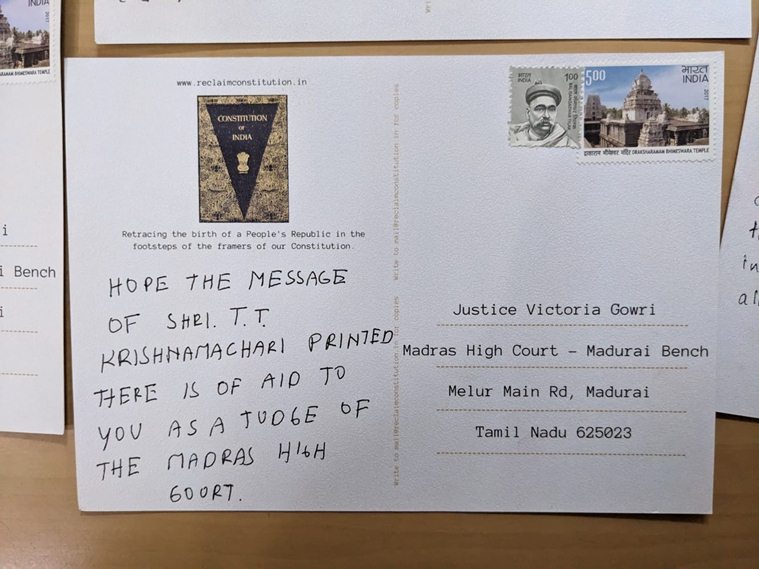 www.reclaimconstitution.in
CONSTITUTION
OF
INDIA
Retracing the birth of a People's Republic in the
footsteps of the framers of our Constitution.
HOPE THE MESSAGE
OF SHRI. T.T.
KRISHNAMACHARI PRINTED
THERE IS OF AID TO
YOU AS A JUDGE OF
THE MADRAS HIGH
COURT.
Write to mail@reclaimconstitution.in for copies
Write to mail@reclaimconstitution.in for copies
भारत INDIA
1.00
BAL GANGADHAR TILAK
5.00
भारत
INDIA
2017
DRAKSHARAMAM BHIMESWARA TEMPLE
Justice Victoria Gowri
Madras High Court - Madurai Bench
Melur Main Rd, Madurai
Tamil Nadu 625023
BHIMESWARA TEMPLE
i
i Bench
i